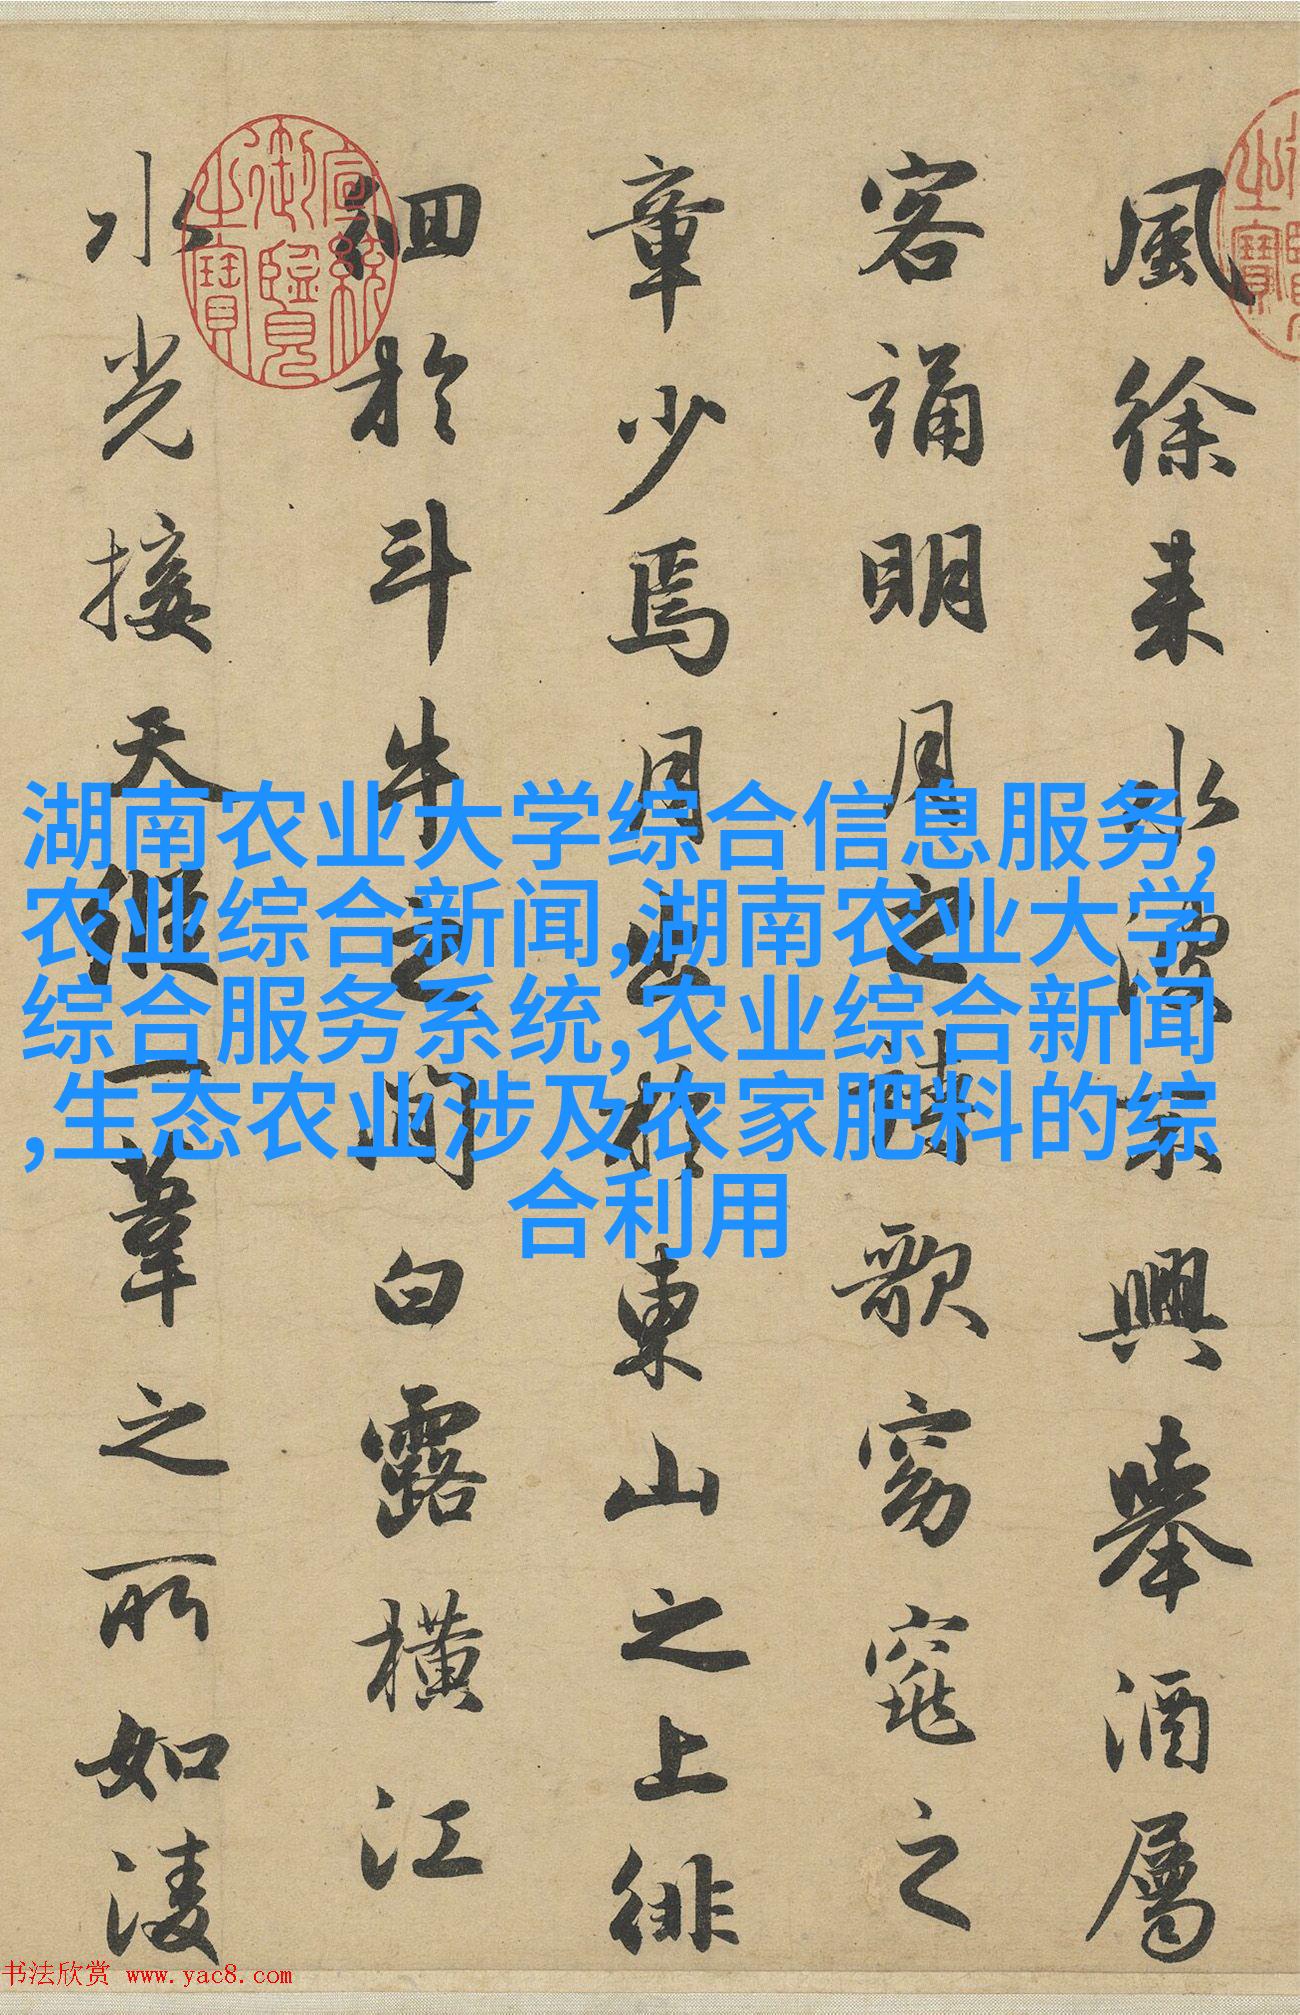 風徐来水波不興舉酒屬
客誦明月之詩歌窈窕之
章少焉月出於東山之上徘
徊於斗牛之間白露橫江
水光接天縱一葦之所如凌
宣統御覽之寶
湖南农业大学综合信息服务,
农业综合新闻,湖南农业大学
综合服务系统,农业综合新闻
,生态农业涉及农家肥料的综
合利用
书法欣赏 www.yac8.com